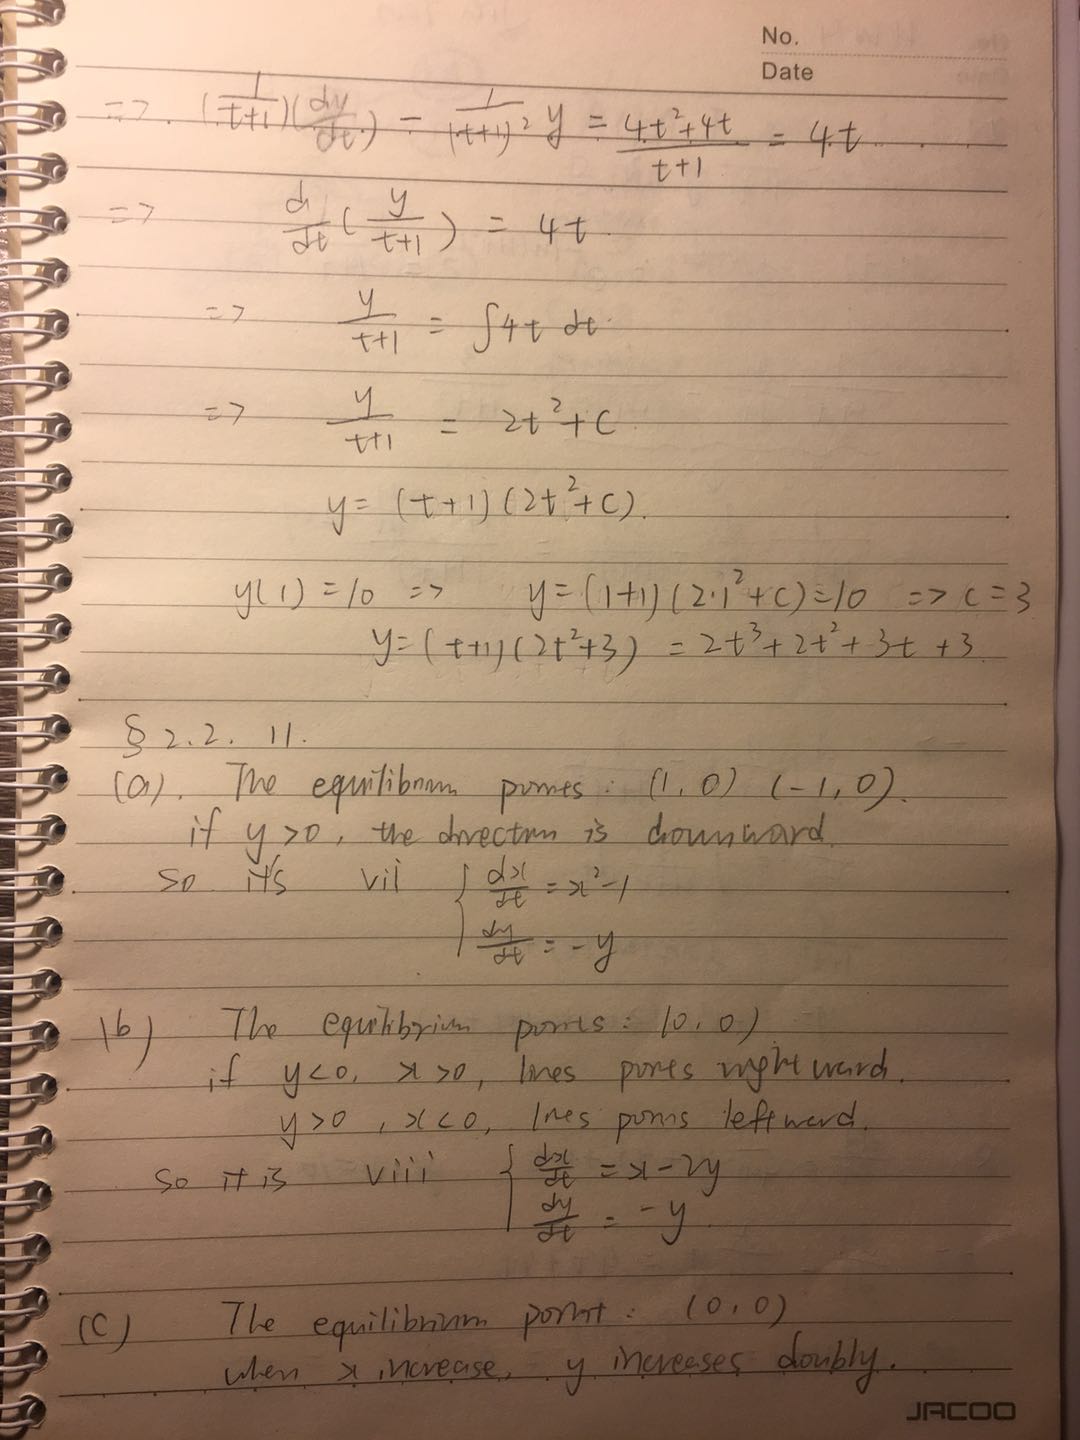 No.
Date
=> (1/(t+1))(dy/dt) - 1/(t+1)² y = (4t²+4t)/(t+1) = 4t
=> d/dt (y/(t+1)) = 4t
=> y/(t+1) = ∫4t dt
=> y/(t+1) = 2t²+C
y = (t+1)(2t²+C).
y(1)=10 => y=(1+1)(2·1²+C)=10 => C=3
y=(t+1)(2t²+3) = 2t³+2t²+3t+3
§ 2.2. 11.
(a). The equilibrium points: (1,0) (-1,0).
if y>0, the direction is downward.
so it's vii { dx/dt = x²-1
dy/dt = -y
(b) The equilibrium points: (0,0)
if y<0, x>0, lines points rightward.
y>0, x<0, lines points leftward.
So it is viii { dx/dt = x-2y
dy/dt = -y
(C) The equilibrium point: (0,0)
when x increase, y increases doubly.
JACOO